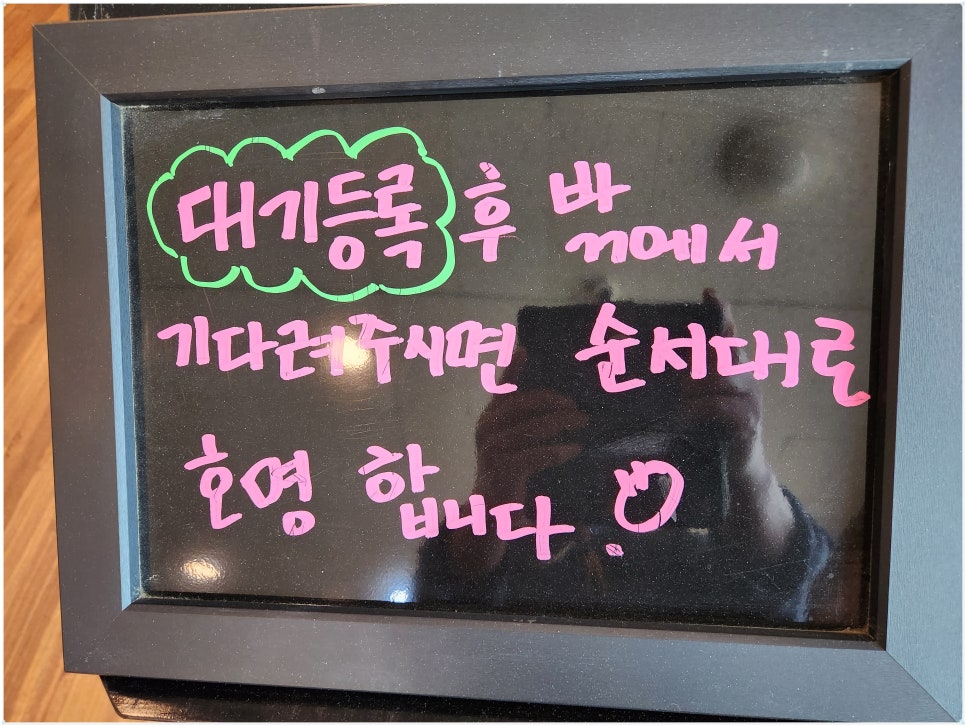 대기등록 후 밖에서
기다려주시면 순서대로
호명 합니다